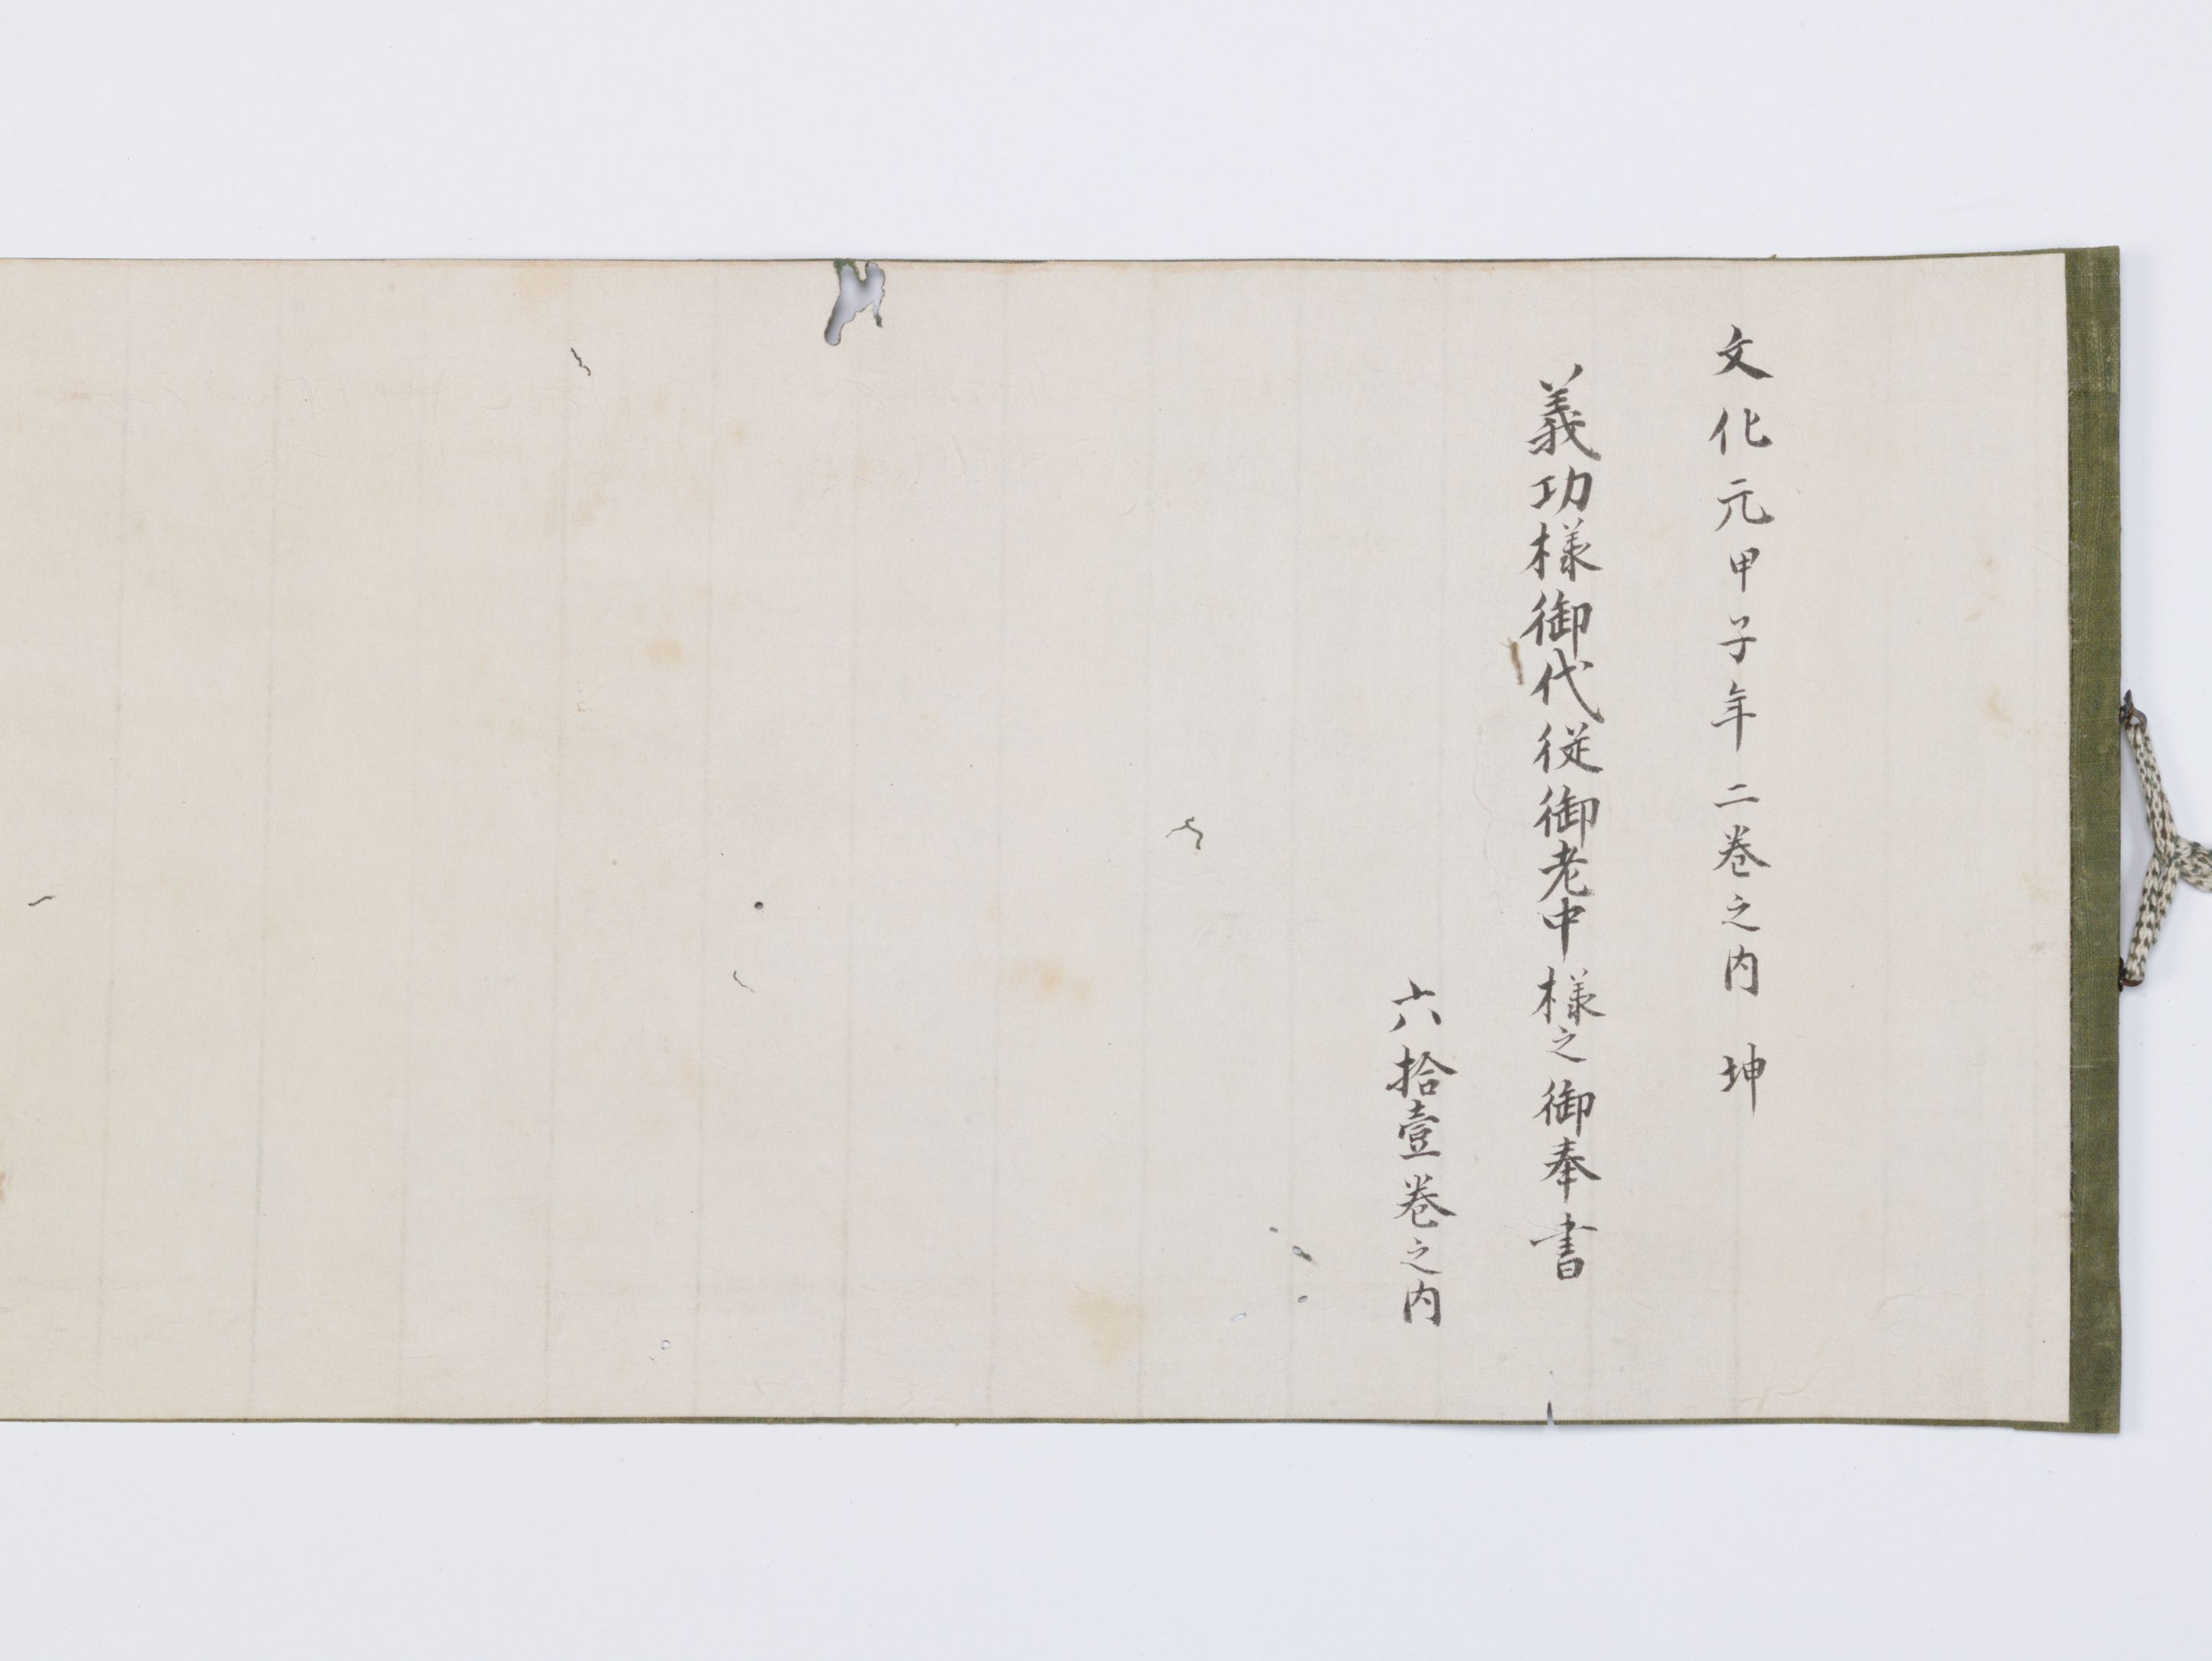 文化元甲子年二巻之内　坤
義功様御代従御老中様之御奉書
六拾壹巻之内